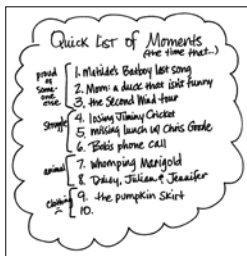 Quick List of Moments
(the time that...)
proud of some-one else
1. Matilda's Badboy last song
2. Mom: a duck that isn't funny
3. the Second Wind tour
Struggle
4. losing Jiminy Cricket
5. missing lunch w/ Chris Goode
6. Bob's phone call
animal
7. Whomping Marigold
8. Daisy, Julian & Jennifer
clothing
9. the pumpkin skirt
10.